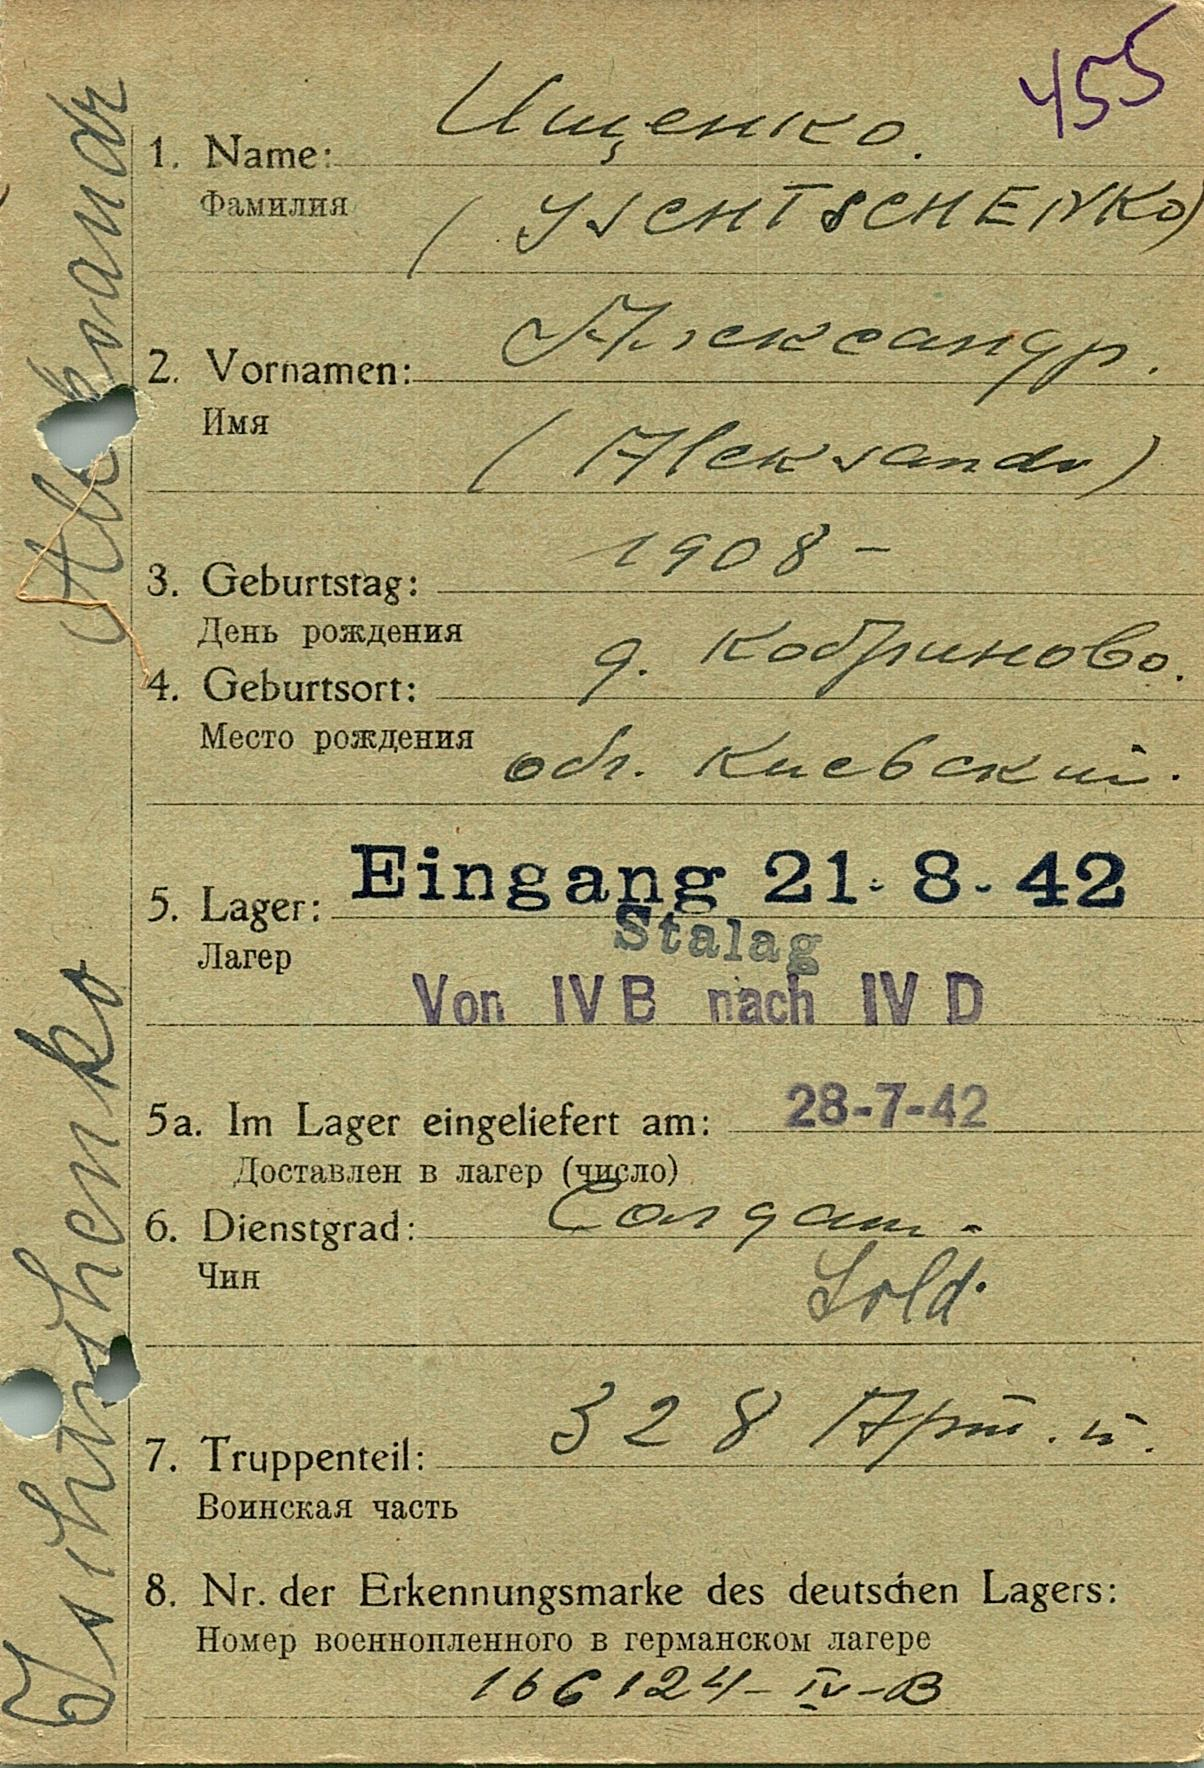 455
Ищенко.
1. Name:
Фамилия
(ISCHTSCHENKO)
Александр.
2. Vornamen:
Имя
(Aleksandr)
1908 –
3. Geburtstag:
День рождения
д. Кобриново.
4. Geburtsort:
Место рождения
обл. Киевский.
Eingang 21. 8. 42
5. Lager:
Stalag
Лагер
Von IV B nach IV D
5a. Im Lager eingeliefert am: 28-7-42
Доставлен в лагер (число)
6. Dienstgrad: Солдат.
Чин
Sold.
328 Арт. п.
7. Truppenteil:
Воинская часть
8. Nr. der Erkennungsmarke des deutschen Lagers:
Номер военнопленного в германском лагере
166124 – IV – B
Ischtschenko Aleksandr